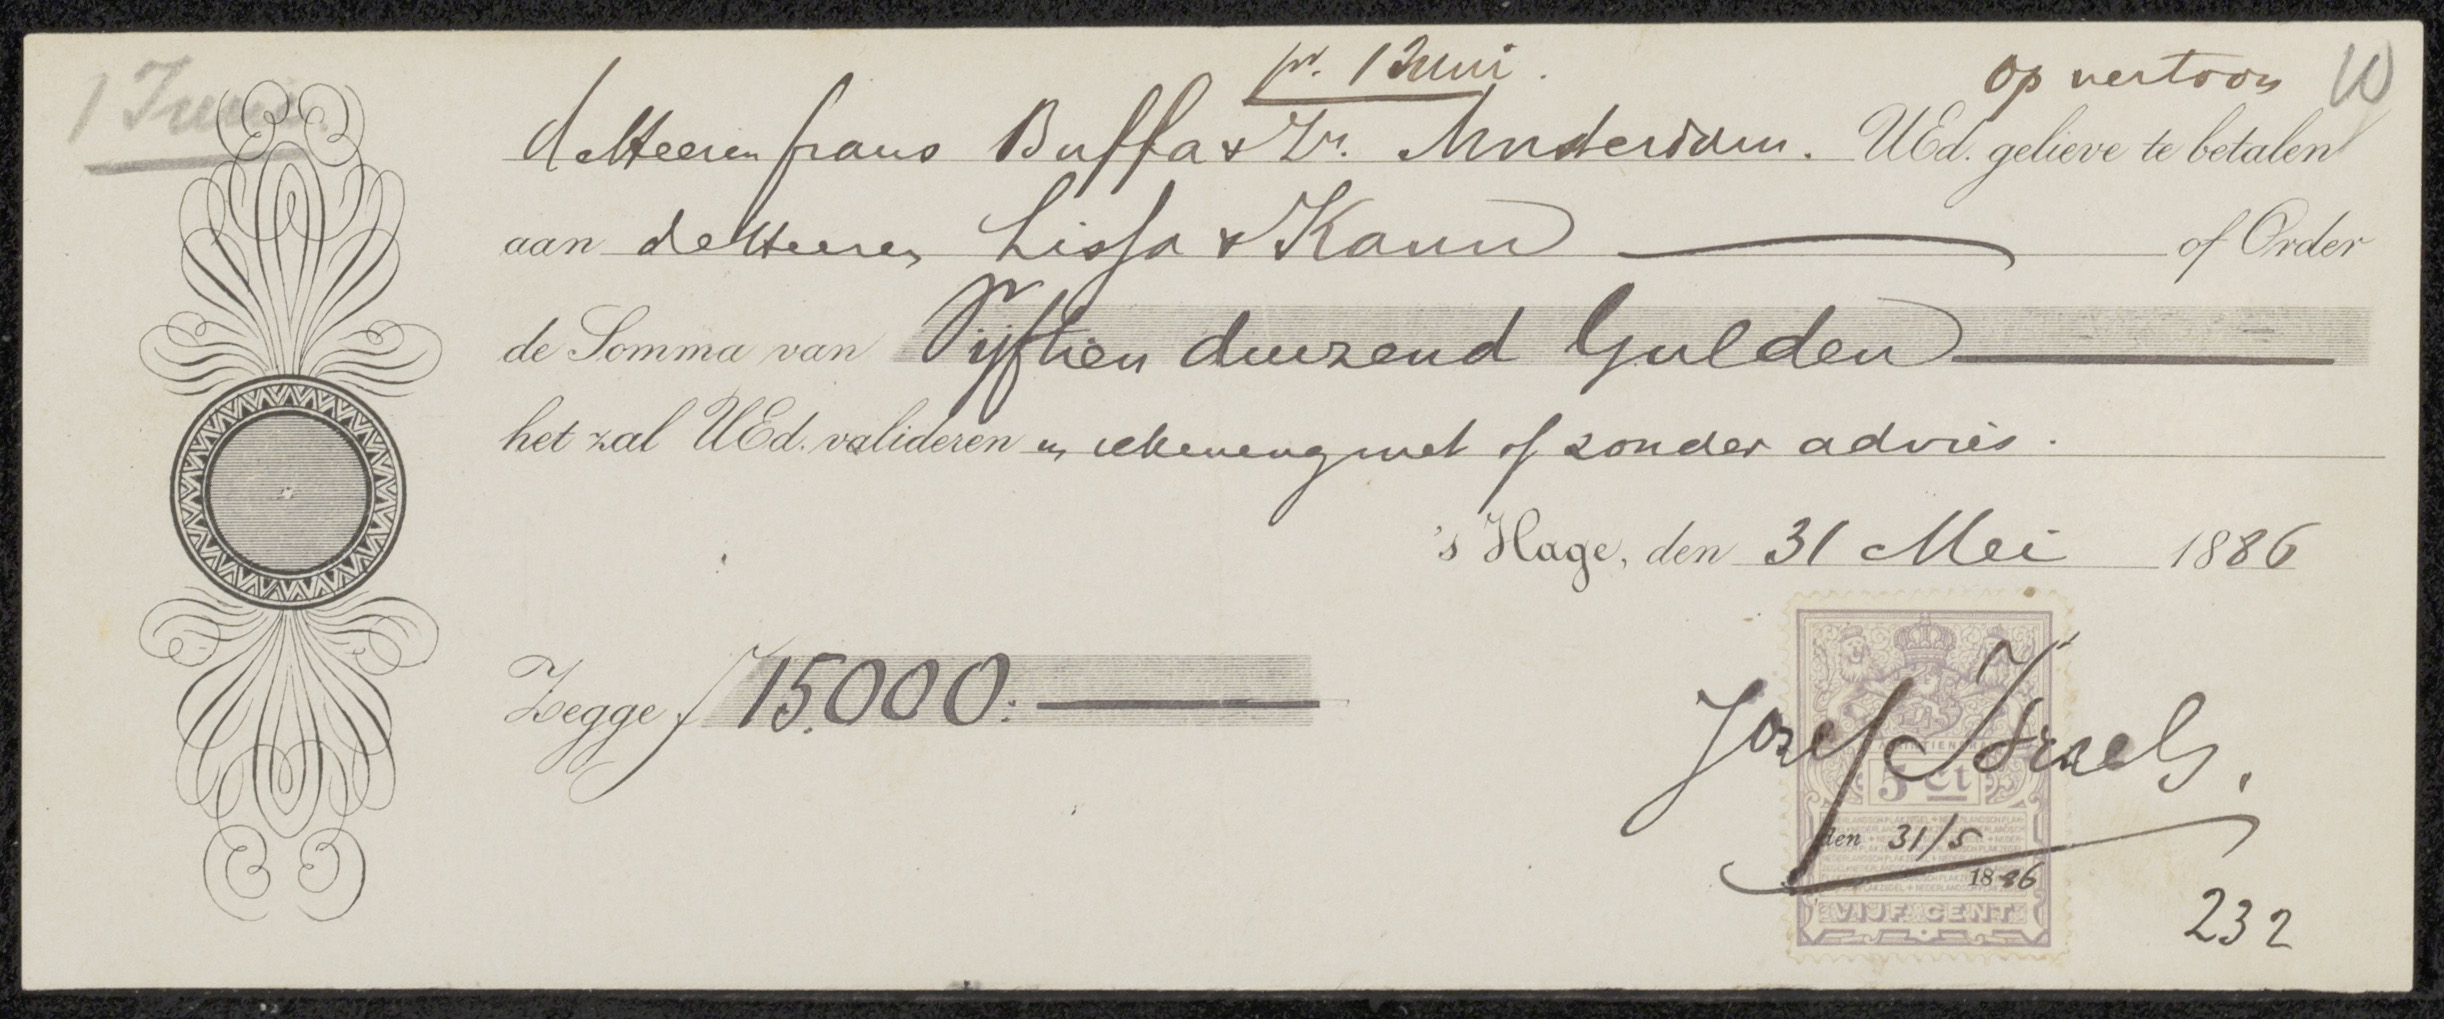 1 Juni
pr. 1 Juni.
op vertoon
de Heeren frans Buffa & Zn. Amsterdam. UEd. gelieve te betalen
aan de Heeren Lissa & Kann of Order
de Somma van Vijftien duizend Gulden
het zal UEd. valideren in rekening met of zonder advies.
's Hage, den 31 Mei 1886
Zegge f 15.000.
Jozef Israels.
5 ct
den 31/5
1886
VIJF CENT
232